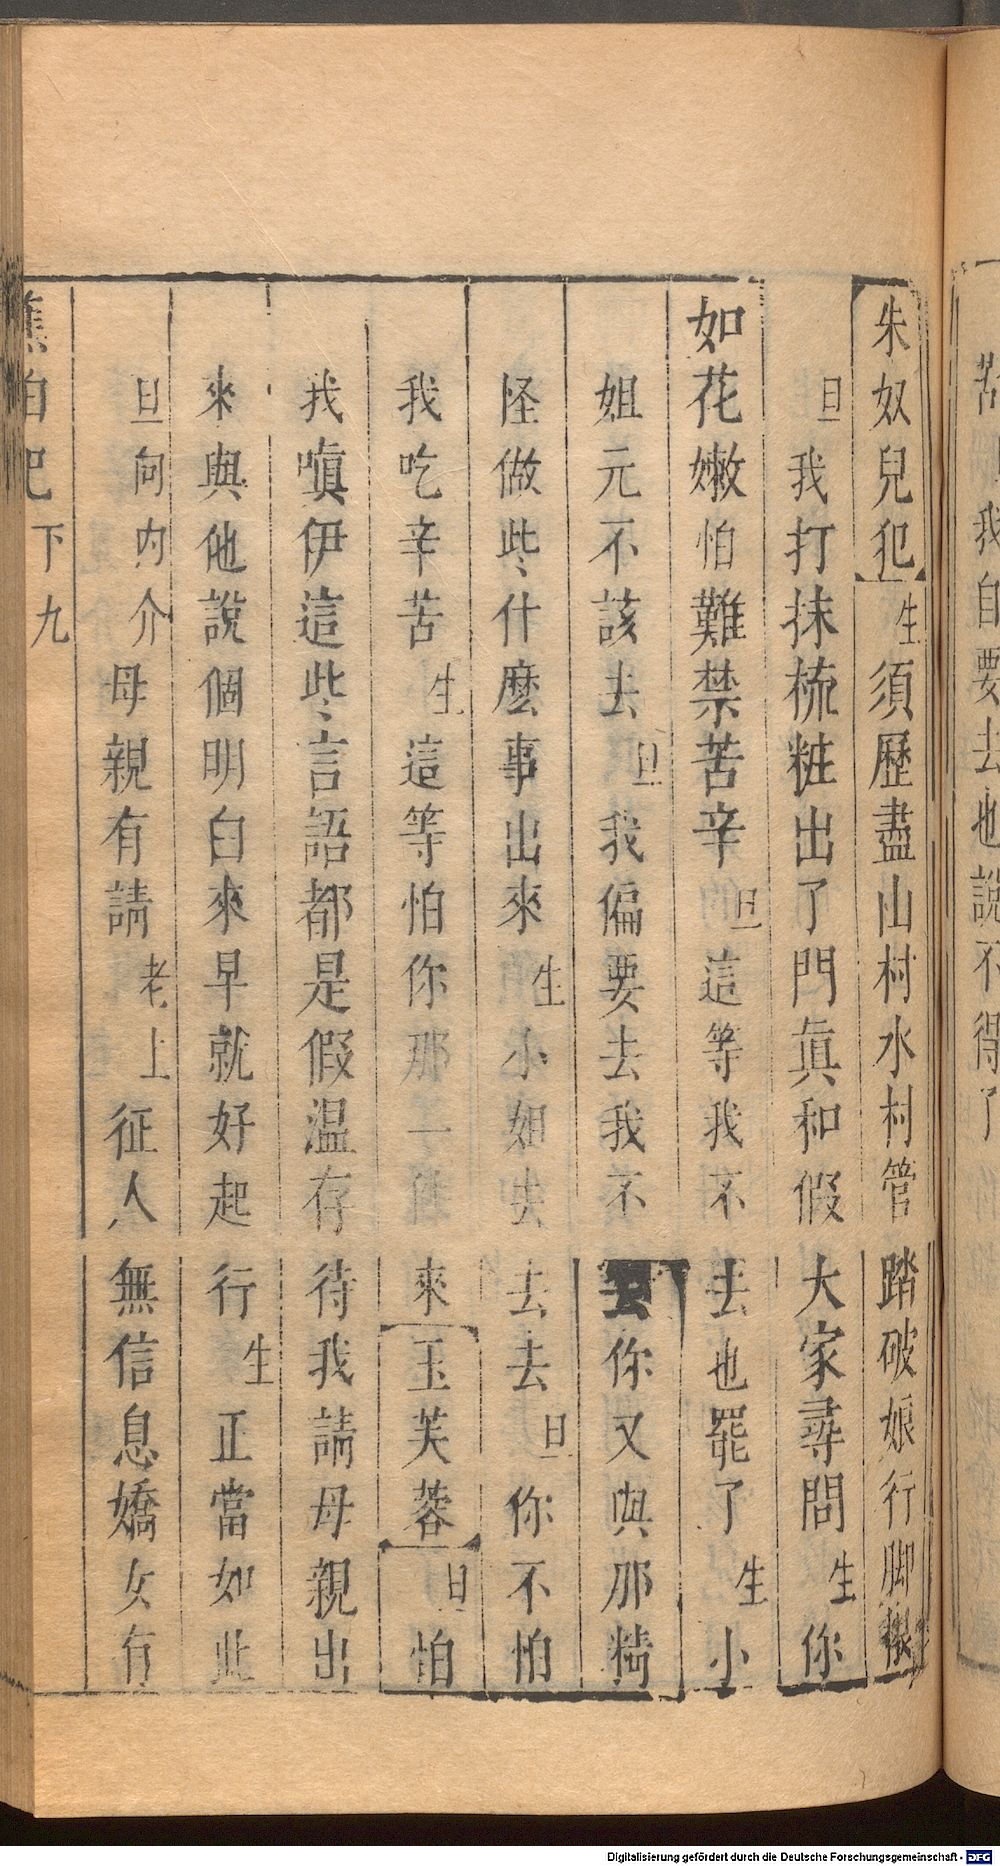 苦我自要去也說不得了
朱奴兒犯生須歷盡山村水村管踏破娘行脚根
旦我打抹梳粧出了門眞和假大家尋問生你
如花嫩怕難禁苦辛旦這等我不去也罷了生小
姐元不該去旦我偏要去我不去你又與那精
怪做些什麽事出來生小姐去去去旦你不怕
我吃辛苦生這等怕你那一來玉芙蓉旦怕
我嗔伊這些言語都是假温存待我請母親出
來與他說個明白來早就好起行生正當如此
旦向内介母親有請老上征人無信息嬌女有
蕉帕記下九
Digitalisierung gefördert durch die Deutsche Forschungsgemeinschaft - DFG